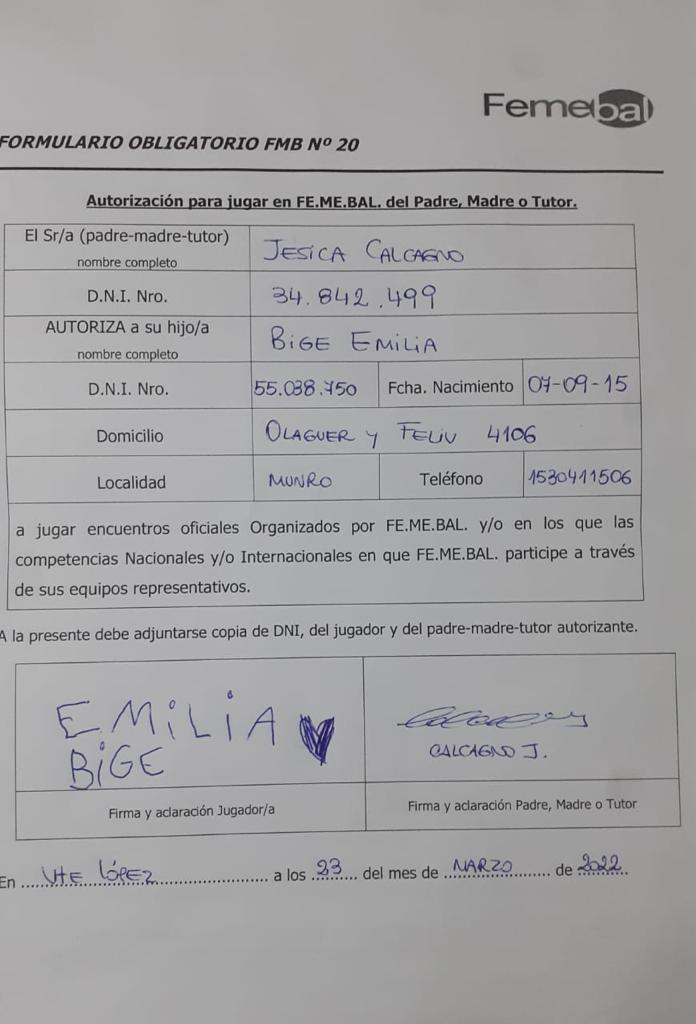 Femebal
FORMULARIO OBLIGATORIO FMB Nº 20
Autorización para jugar en FE.ME.BAL. del Padre, Madre o Tutor.
El Sr/a (padre-madre-tutor)
nombre completo
JESICA CALCAGNO
D.N.I. Nro.
34.842.499
AUTORIZA a su hijo/a
nombre completo
BIGE EMILIA
D.N.I. Nro.
55.038.750
Fcha. Nacimiento
07-09-15
Domicilio
OLAGUER Y FELIU 4106
Localidad
MUNRO
Teléfono
1530411506
a jugar encuentros oficiales Organizados por FE.ME.BAL. y/o en los que las
competencias Nacionales y/o Internacionales en que FE.ME.BAL. participe a través
de sus equipos representativos.
A la presente debe adjuntarse copia de DNI, del jugador y del padre-madre-tutor autorizante.
EMILIA
BIGE
CALCAGNO J.
Firma y aclaración Jugador/a
Firma y aclaración Padre, Madre o Tutor
En VTE LÓPEZ a los 23 del mes de MARZO de 2022